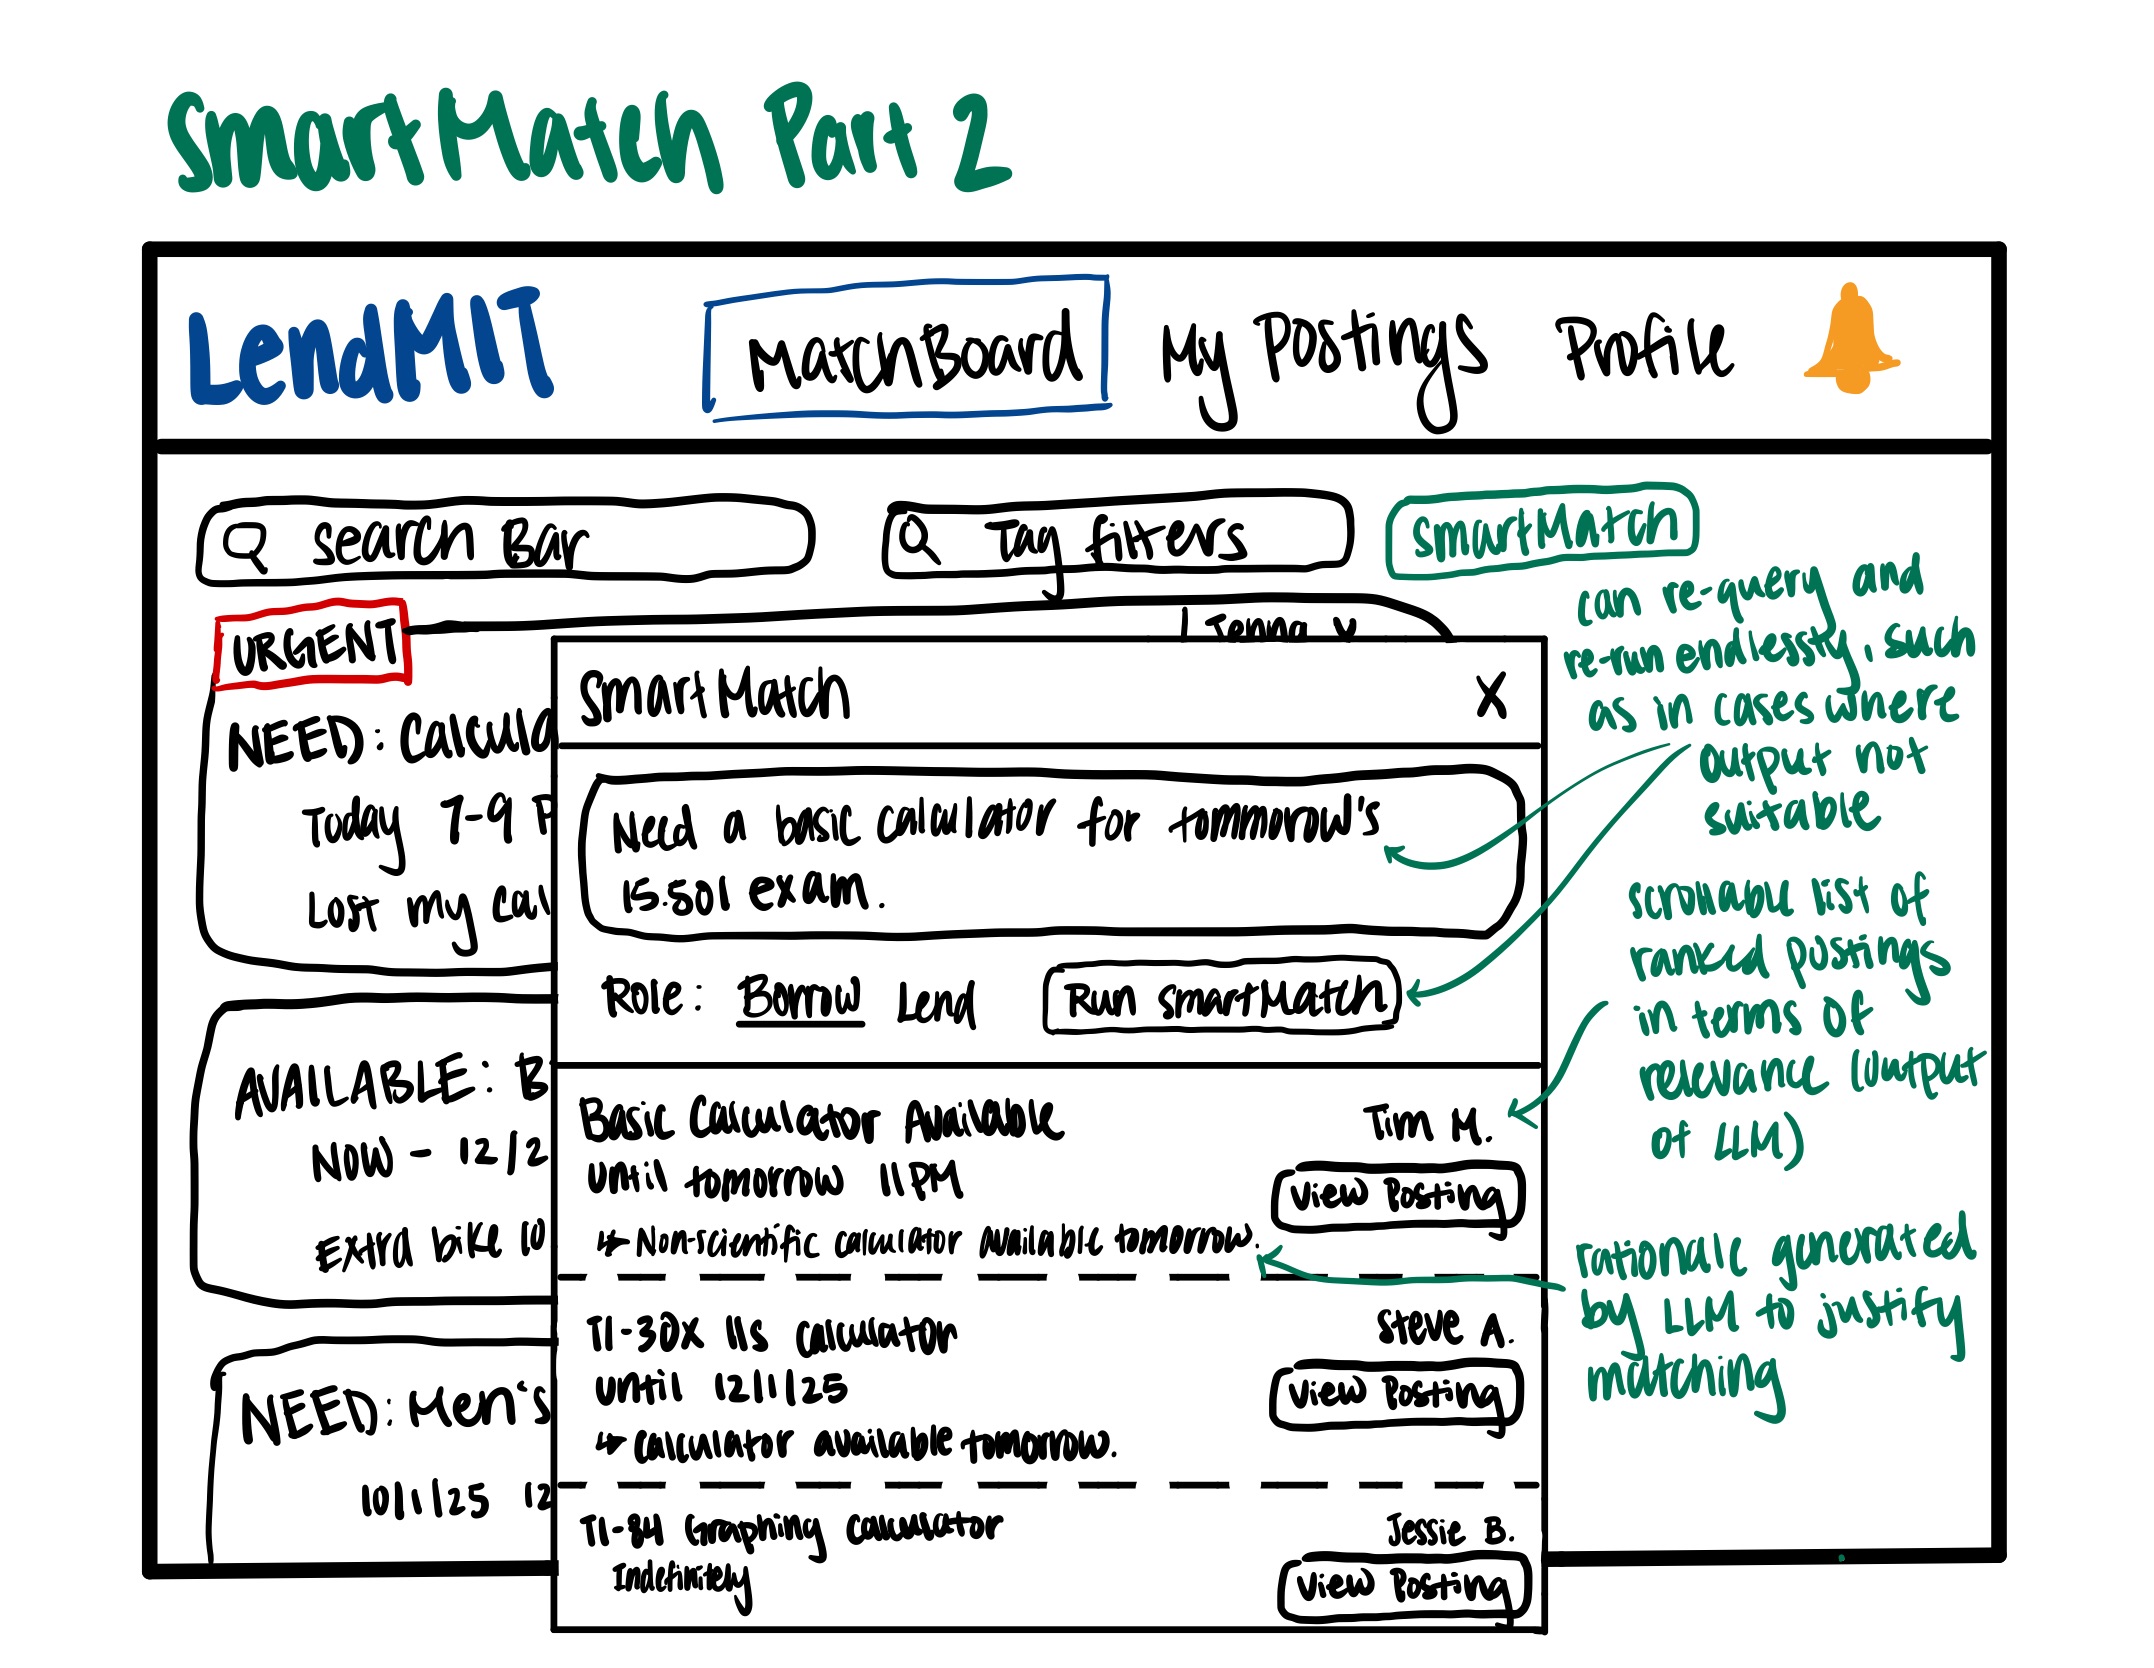 SmartMatch Part 2
LendMIT MatchBoard My Postings Profile
Search Bar
Tag filters
SmartMatch
URGENT
Jenna
NEED: Calcula
Today 7-9 P
Lost my cal
AVAILABLE: B
NOW - 12/2
Extra bike lo
NEED: Men's
10/1/25 12
SmartMatch X
Need a basic calculator for tommorow's
15.501 exam.
Role: Borrow Lend Run SmartMatch
Basic Calculator Available Tim M.
Until tomorrow 11PM View Posting
↳ Non-scientific calculator available tomorrow.
TI-30x IIs calculator Steve A.
Until 12/1/25 View Posting
↳ calculator available tomorrow.
TI-84 Graphing Calculator Jessie B.
Indefinitely View Posting
can re-query and
re-run endlessly, such
as in cases where
output not
suitable
scrollable list of
ranked postings
in terms of
relevance (output
of LLM)
rationale generated
by LLM to justify
matching